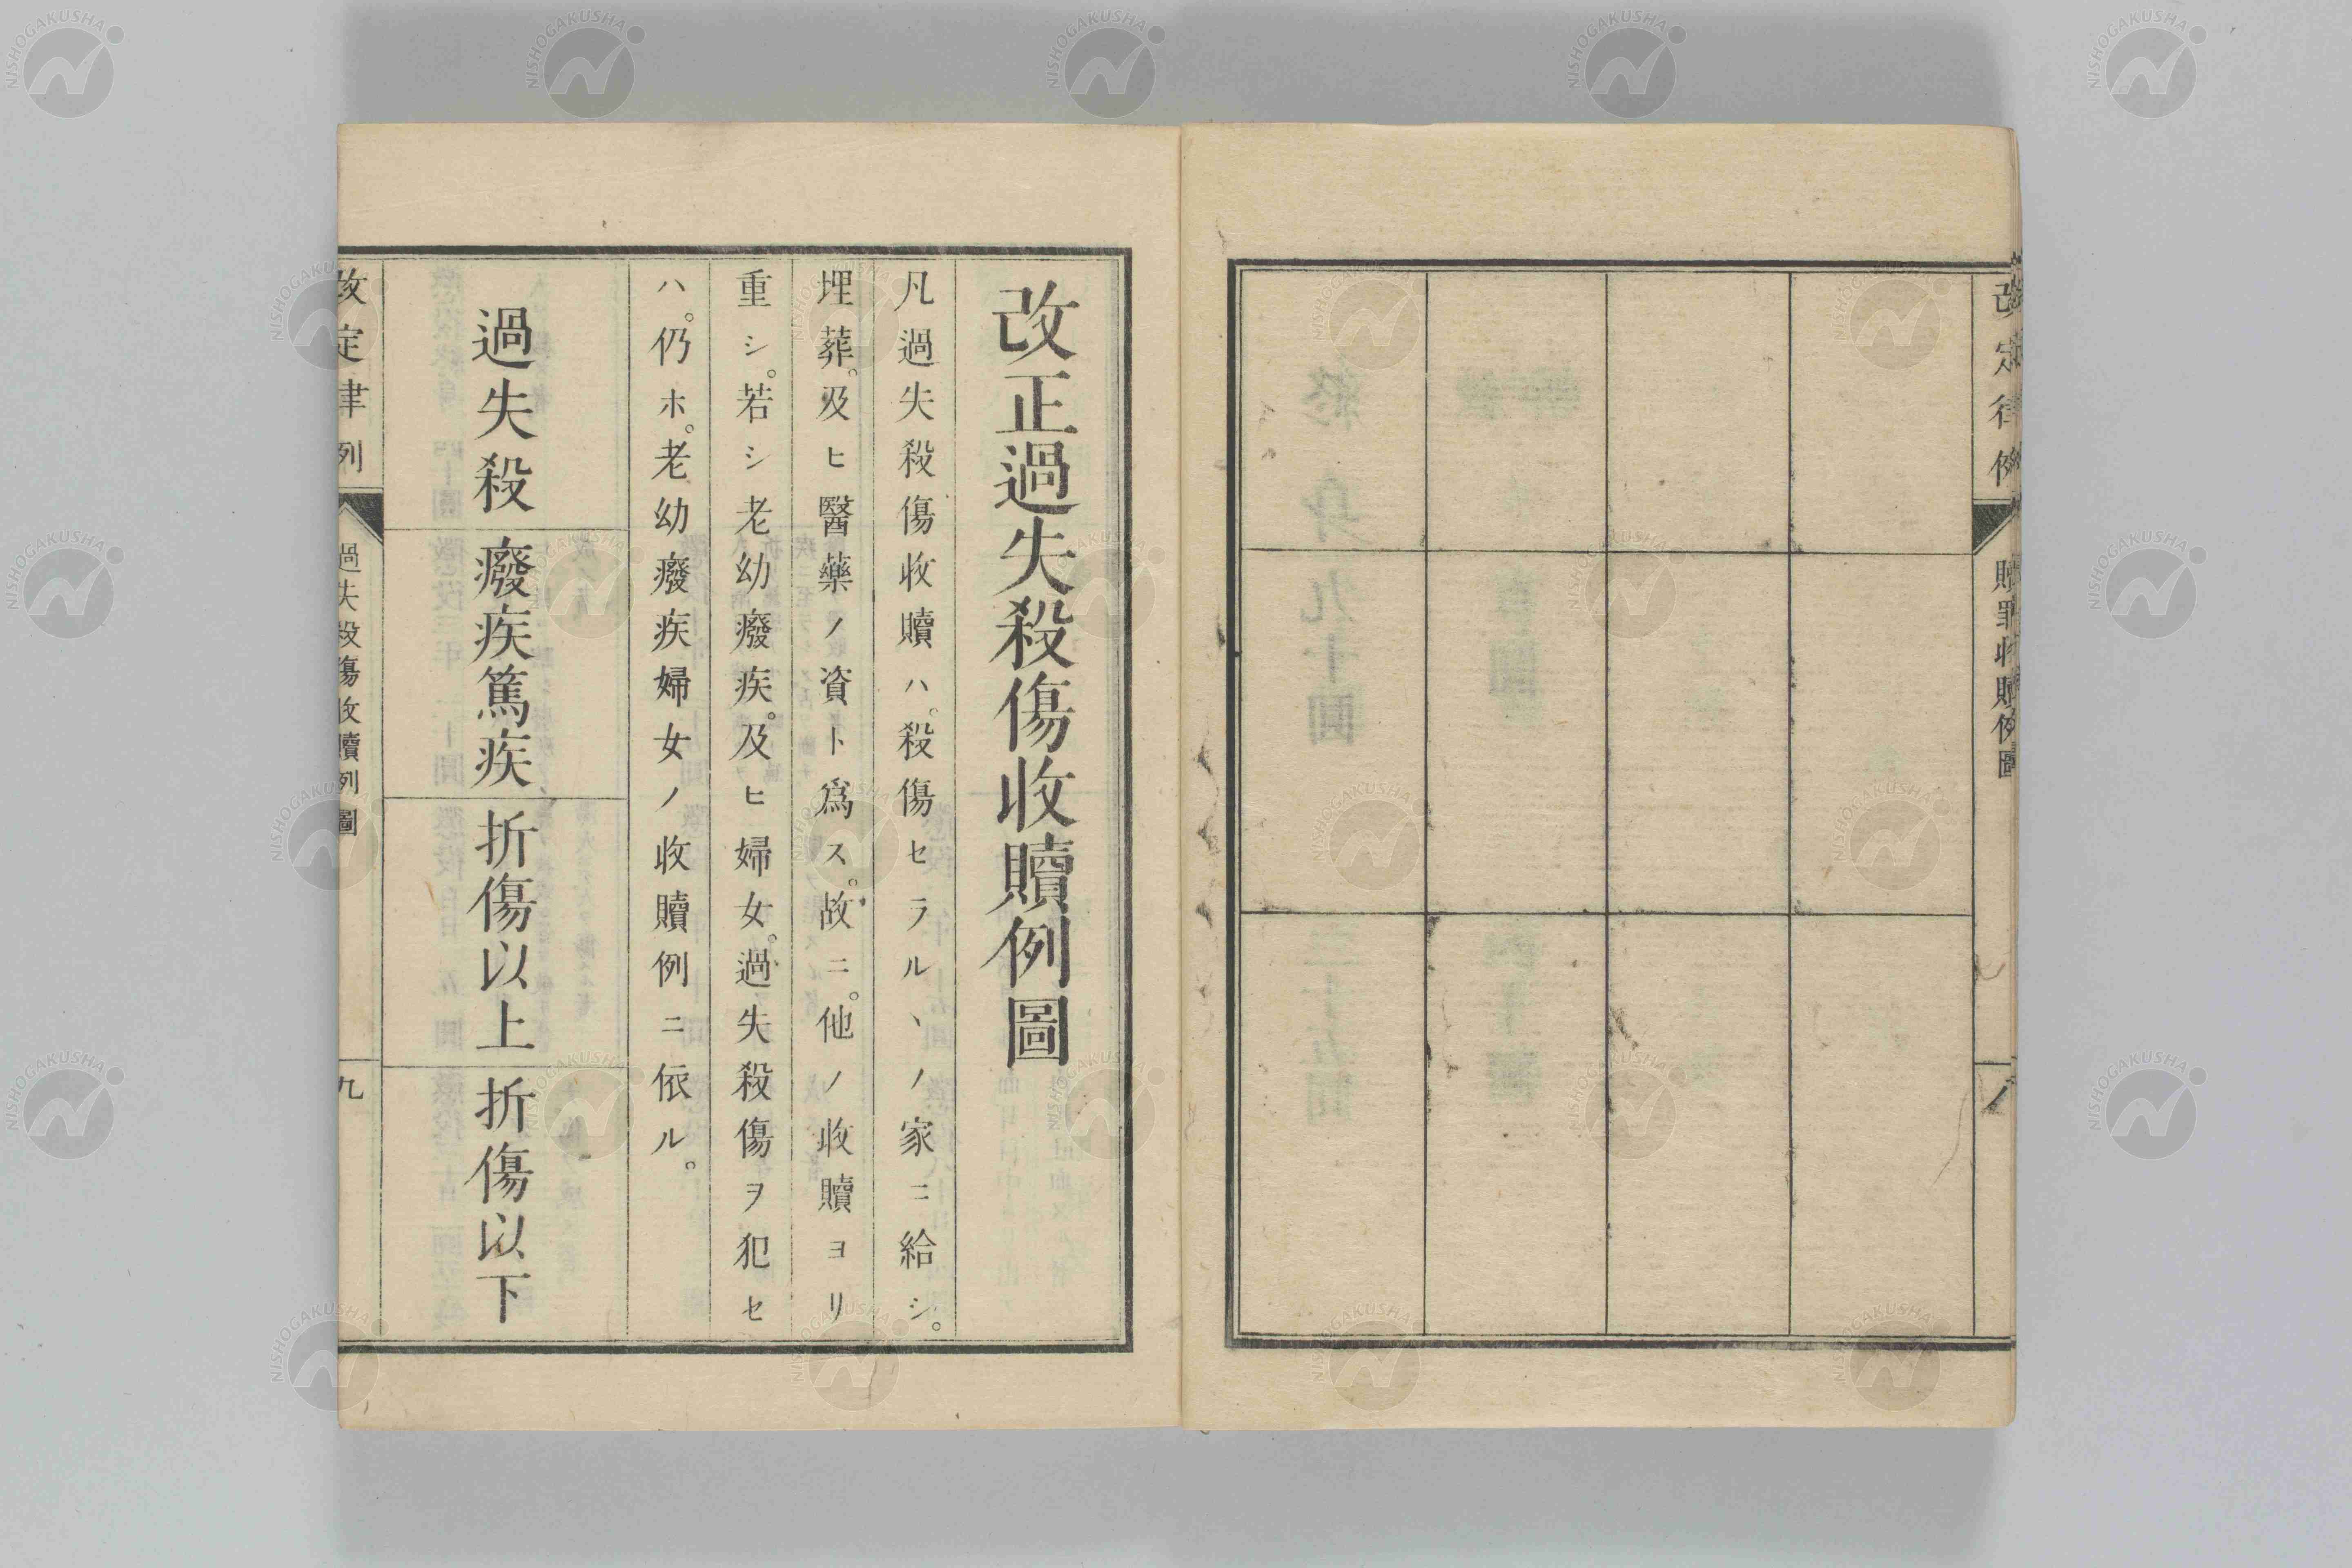 改定律例
贖罪收贖例圖
改正過失殺傷收贖例圖
凡過失殺傷收贖ハ。殺傷セラルヽノ家ニ給シ。
埋葬。及ヒ醫藥ノ資ト爲ス。故ニ。他ノ收贖ヨリ
重シ。若シ老幼癈疾。及ヒ婦女。過失殺傷ヲ犯セ
ハ。仍ホ。老幼癈疾婦女ノ收贖例ニ依ル。
過失殺
癈疾篤疾
折傷以上
折傷以下
改定律例
過失殺傷收贖例圖
九
NISHOGAKUSHA